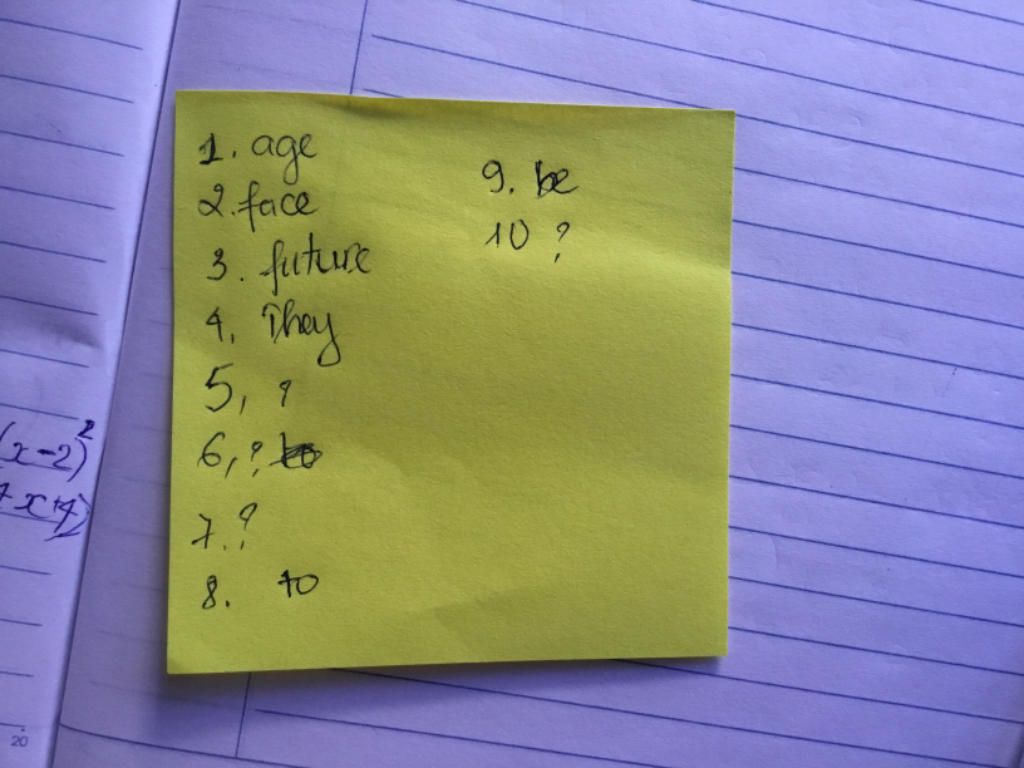 1. age
2. face
3. future
4, They
5, ?
6, ?
7. ?
8. to
9. be
10 ?
(x-2)²
x+4)
20